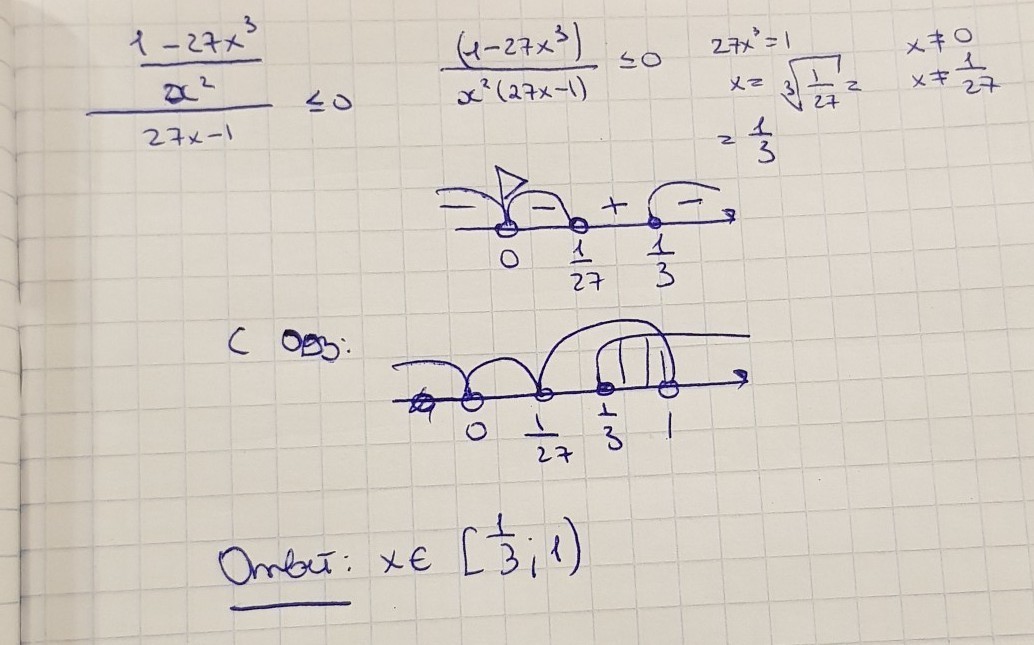 (1-27x³)/x² / (27x-1) ≤0 (1-27x³)/(x²(27x-1)) ≤0 27x³=1 x≠0
x= ∛(1/27) = x≠ 1/27
= 1/3
- - + -
0 1/27 1/3
С ОДЗ:
0 1/27 1/3 1
Ответ: x∈ [1/3; 1)